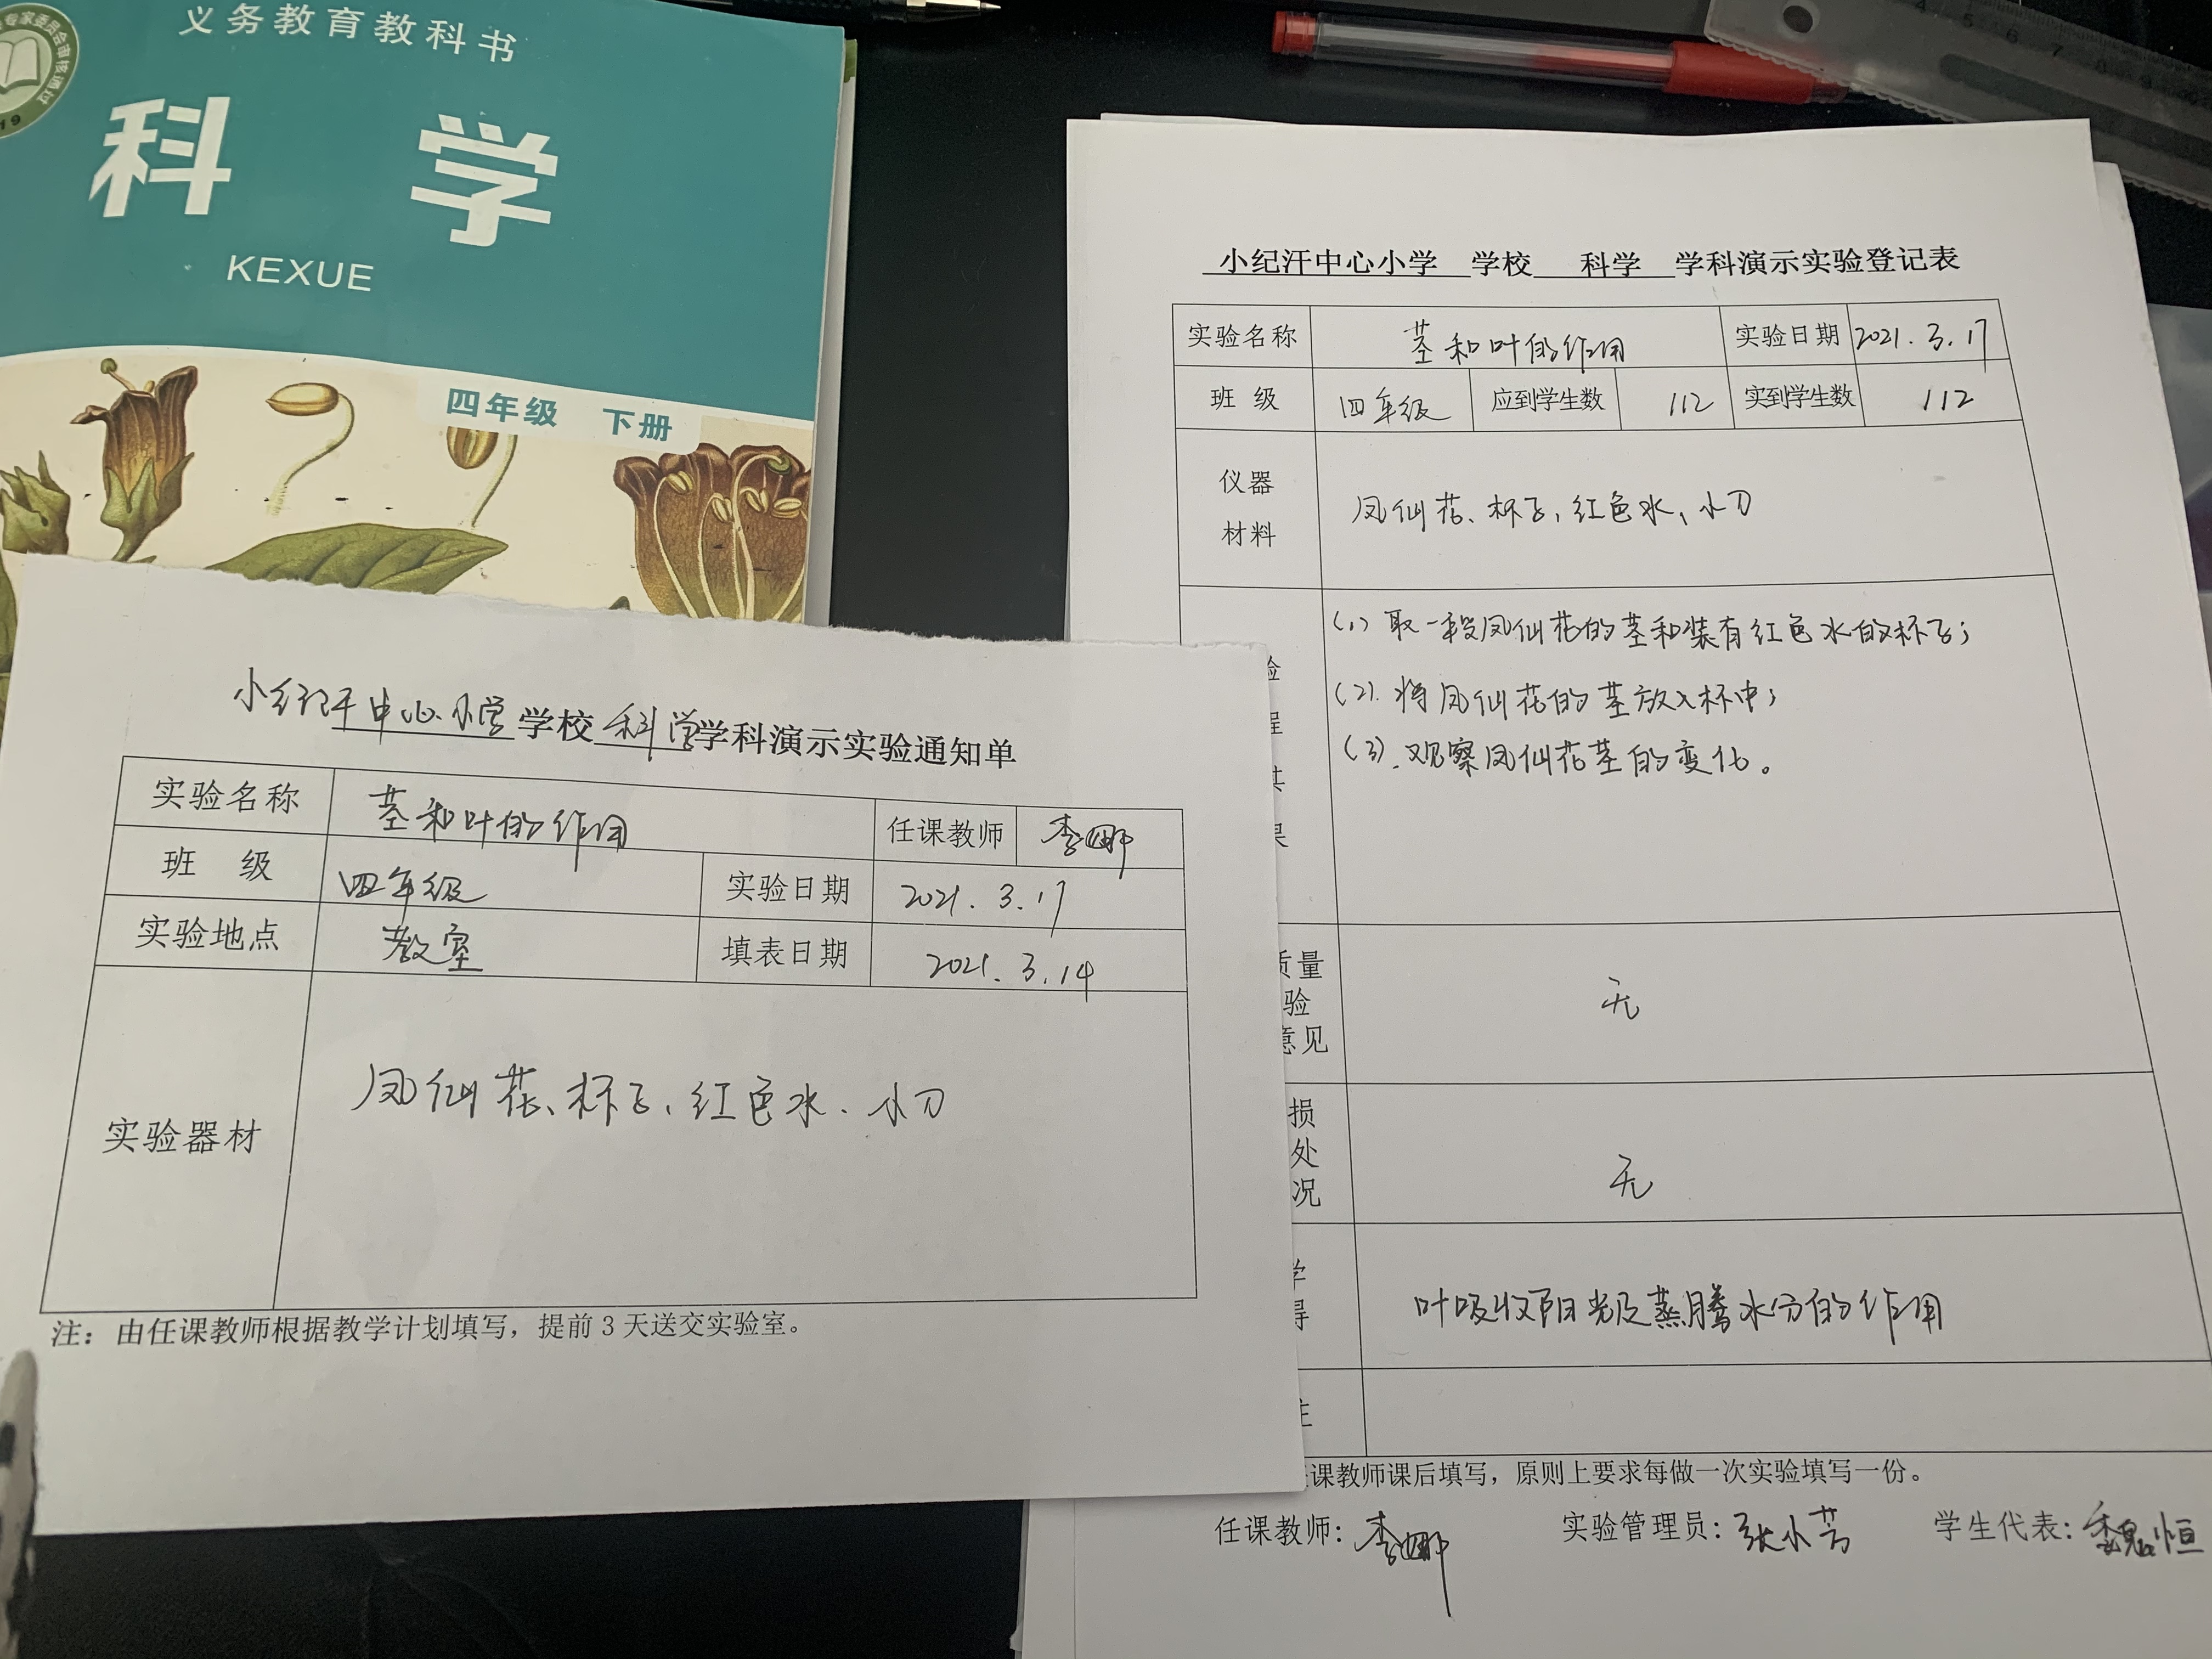 义务教育教科书
科学
KEXUE
四年级 下册
专家委员会审核通过
19
小纪汗中心小学学校科学学科演示实验通知单
实验名称 茎和叶的作用 任课教师 李娜
班 级 四年级 实验日期 2021.3.17
实验地点 教室 填表日期 2021.3.14
实验器材 凤仙花、杯子、红色水、小刀
注：由任课教师根据教学计划填写，提前3天送交实验室。
小纪汗中心小学 学校 科学 学科演示实验登记表
实验名称 茎和叶的作用 实验日期 2021.3.17
班 级 四年级 应到学生数 112 实到学生数 112
仪器
材料
凤仙花、杯子、红色水、小刀
验
程
果
(1) 取一段凤仙花的茎和装有红色水的杯子；
(2). 将凤仙花的茎放入杯中；
(3). 观察凤仙花茎的变化。
质量
验
意见
无
损
处
况
无
学
得
叶吸收阳光及蒸腾水分的作用
注
课教师课后填写，原则上要求每做一次实验填写一份。
任课教师：李娜 实验管理员：张小芳 学生代表：魏恒
4 5 6 7 8 9